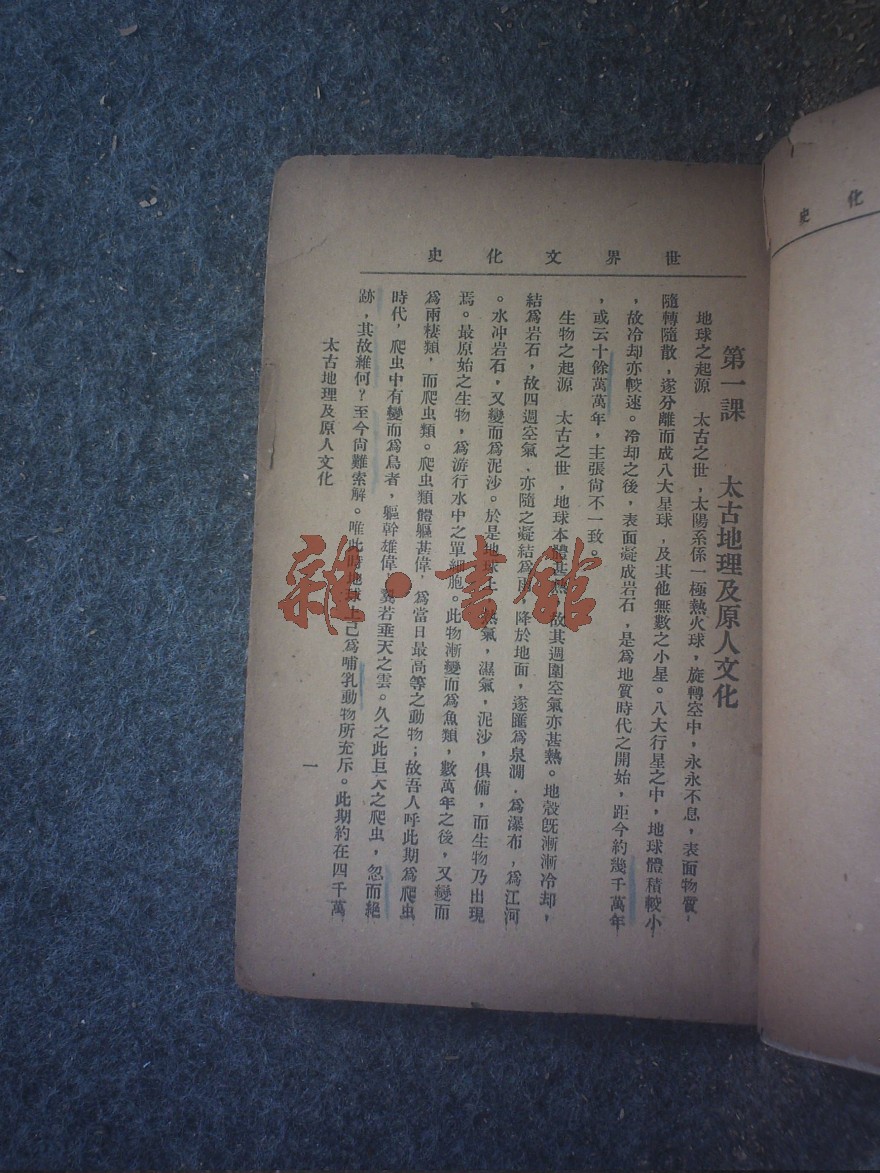 世界文化史
第一課　太古地理及原人文化
地球之起源　太古之世，太陽系係一極熱火球，旋轉空中，永永不息，表面物質，
隨轉隨散，遂分離而成八大星球，及其他無數之小星。八大行星之中，地球體積較小
，故冷却亦較速。冷却之後，表面凝成岩石，是爲地質時代之開始，距今約幾千萬年
，或云十餘萬萬年，主張尙不一致。
生物之起源　太古之世，地球本體甚熱，故其週圍空氣亦甚熱。地殼旣漸漸冷却，
結爲岩石，故四週空氣、亦隨之凝結爲雨，降於地面，遂匯爲泉澗，爲瀑布，爲江河
。水冲岩石，又變而爲泥沙。於是地球上，熱氣，濕氣，泥沙，俱備，而生物乃出現
焉。最原始之生物，爲游行水中之單細胞。此物漸變而爲魚類，數萬年之後，又變而
爲兩棲類，而爬虫類。爬虫類體軀甚偉，爲當日最高等之動物；故吾人呼此期爲爬虫
時代，爬虫中有變而爲鳥者，軀幹雄偉，翼若垂天之雲。久之此巨大之爬虫，忽而絕
跡，其故維何？至今尙難索解。唯此時地球上已爲哺乳動物所充斥。此期約在四千萬
太古地理及原人文化
一
化史
雜·書館